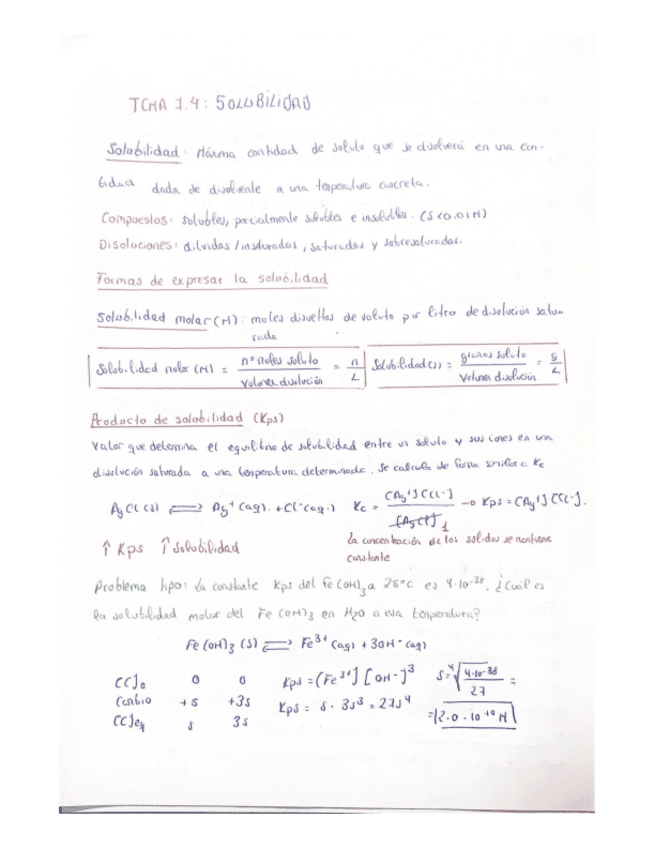 TEMA 7.4: SOLUBILIDAD
Solubilidad: Máxima cantidad de soluto que se disolverá en una can-
tidad dada de disolvente a una temperatura concreta.
Compuestos: solubles, parcialmente solubles e insolubles. (s<0.01M)
Disoluciones: diluidas/insaturadas, saturadas y sobresaturadas.
Formas de expresar la solubilidad
Solubilidad molar (M): moles disueltos de soluto por litro de disolución satu-
rada
Solubilidad molar (M) = nº moles soluto / volumen disolución = n / L
Solubilidad (s) = gramos soluto / volumen disolución = g / L
Producto de solubilidad (Kps)
Valor que determina el equilibrio de solubilidad entre un soluto y sus iones en una
disolución saturada a una temperatura determinada. Se calcula de forma similar a Kc
AgCl (s) ⇌ Ag+ (aq). + Cl- (aq.) Kc = [Ag+][Cl-] / [AgCl] 1 → Kps = [Ag+][Cl-].
↑ Kps ↑ Solubilidad
la concentración de los solidos se mantiene
constante
Problema tipo: La constante Kps del Fe(OH)3 a 25ºC es 4·10-38. ¿Cuál es
la solubilidad molar del Fe(OH)3 en H2O a esa temperatura?
Fe(OH)3 (s) ⇌ Fe3+ (aq) + 3OH- (aq)
[C]0 0 0 Kps = [Fe3+] [OH-]3 s = ⁴√(4·10-38 / 27) =
Cambio +s +3s Kps = s · 3s3 = 27s4
[C]eq s 3s = 2.0 · 10-10 M